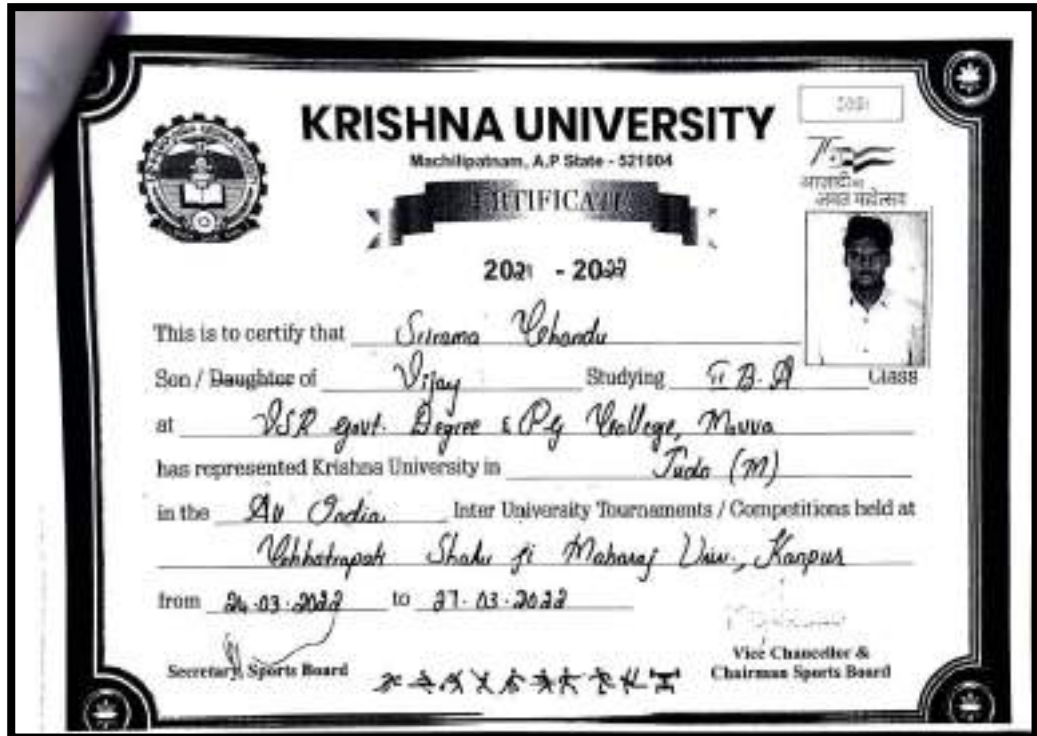 KRISHNA UNIVERSITY
Machilipatnam, A.P State - 521004
CERTIFICATE
75
आज़ादी का
अमृत महोत्सव
2021 - 2022
This is to certify that Srirama Chandu
Son / Daughter of Vijay Studying II B.A Class
at VSR govt. Degree & PG College, Movva
has represented Krishna University in Judo (M)
in the All India Inter University Tournaments / Competitions held at
Chhatrapati Shahu ji Maharaj Univ., Kanpur
from 24.03.2022 to 27.03.2022
Secretary, Sports Board
Vice Chancellor &
Chairman Sports Board